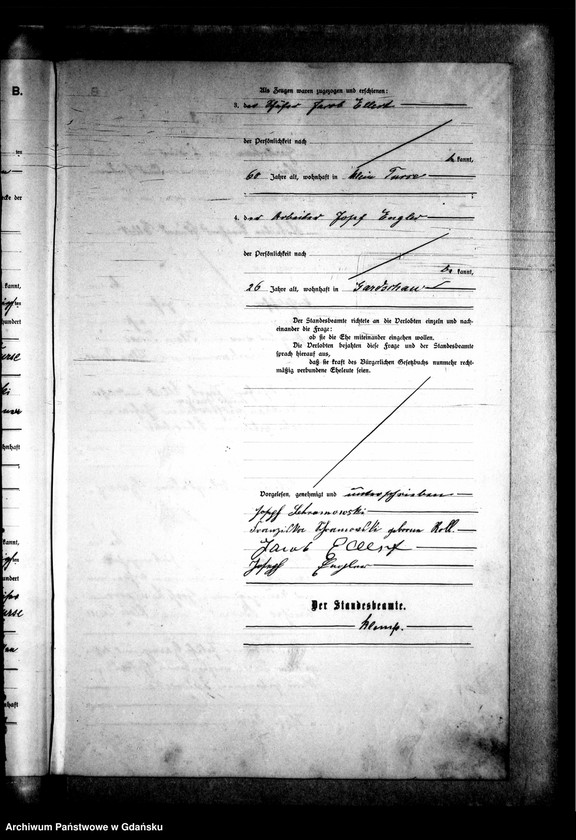 B.
Als Zeugen waren zugezogen und erschienen:
3. der Jacob Ellert
der Persönlichkeit nach
kannt,
60 Jahre alt, wohnhaft in Klein Turse
4. der Arbeiter Josef Engler
der Persönlichkeit nach
be kannt,
26 Jahre alt, wohnhaft in Gardschau
Der Standesbeamte richtete an die Verlobten einzeln und nach-
einander die Frage:
ob sie die Ehe miteinander eingehen wollen.
Die Verlobten bejahten diese Frage und der Standesbeamte
sprach hierauf aus,
daß sie kraft des Bürgerlichen Gesetzbuchs nunmehr recht-
mäßig verbundene Eheleute seien.
Vorgelesen, genehmigt und unterschrieben
Josef Schramowski
Franziska Schramowski geborene Roll.
Jacob Ellert
Joseph Engler
Der Standesbeamte.
Klemp.
Archiwum Państwowe w Gdańsku